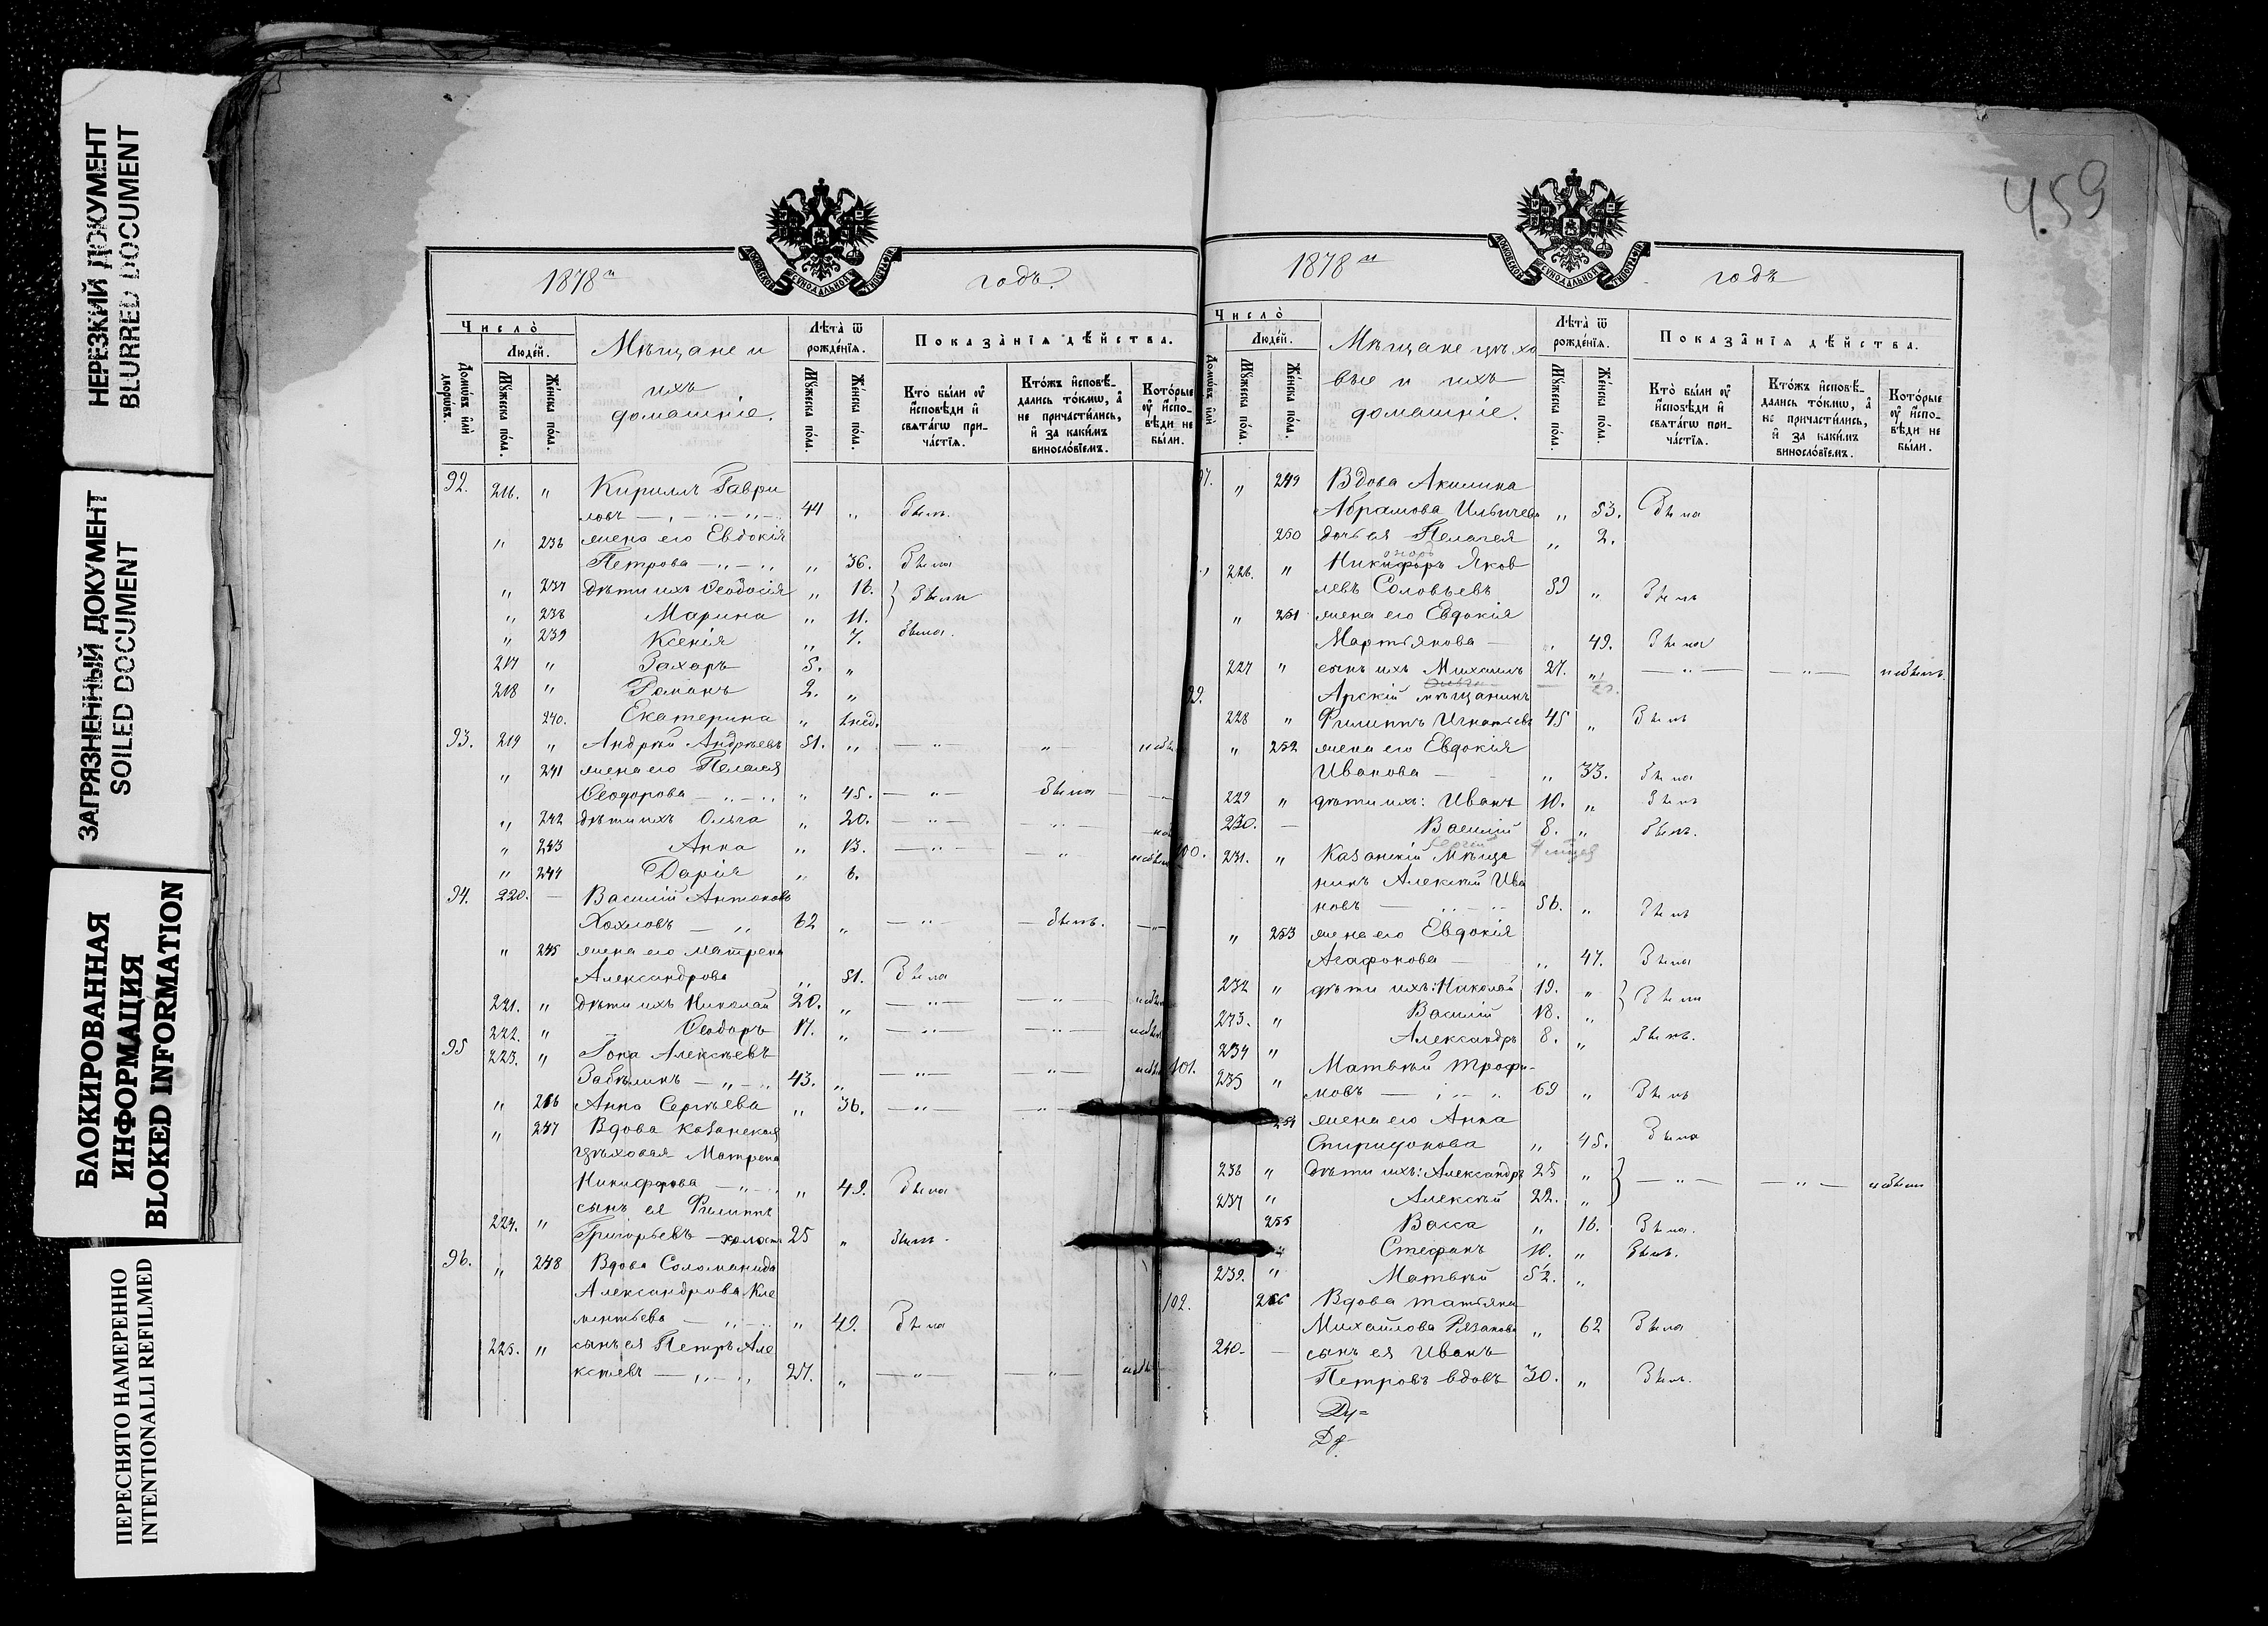 НЕРЕЗКИЙ ДОКУМЕНТ
BLURRED DOCUMENT
ЗАГРЯЗНЕННЫЙ ДОКУМЕНТ
SOILED DOCUMENT
БЛОКИРОВАННАЯ
ИНФОРМАЦИЯ
BLOKED INFORMATION
ПЕРЕСНЯТО НАМЕРЕННО
INTENTIONALLI REFILMED
МОСКОВСКОЙ СѴНОДАЛЬНОЙ ТИПОГРАФІИ
1878 годъ.
Число̀
Домѡ́въ и҆лѝ дворѡ́въ.
Люде́й.
Мꙋ́жеска по́ла.
Же́нска по́ла.
Мѣщане и
ихъ
домашніе.
Лѣ́та ѿ рожде́нїѧ.
Мꙋ́жеска по́ла.
Же́нска по́ла.
Показа̑нїѧ дѣ́йства.
Кто̀ бы́ли ᲂу҆
и҆́сповѣди и҆
свѧта́гѡ при-
ча́стїѧ.
Кто́жъ и҆сповѣ́-
дались то́кмѡ, а҆
не причасти́лись,
и҆ за каки́мъ
винослóвїемъ.
Кото́рые
ᲂу҆ и҆́спо-
вѣди не
бы́ли.
92. 216. " Кирилъ Гаври
ловъ 44 " былъ.
" 236 жена его Евдокія
Петрова " 36. была
" 237 дѣти ихъ Ѳеодосія " 16. были
" 238 Марина " 11.
" 239 Ксенія " 7. была.
217 " Захаръ 5. "
218 " Романъ 2. "
240. Екатерина " нед.
93. 219 " Андрей Андреевъ 51. "
" 241 жена его Пелагея
Ѳеодорова " 45. была
" 242 дѣти ихъ Ольга " 20.
" 243 Анна " 13.
" 244 Дарія " 6.
94. 220. — Василій Антоновъ
Хохловъ 62 " былъ.
" 245 жена его Матрена
Александрова " 51. была
221. " дѣти ихъ Николай 20. "
222. " Ѳеодоръ 17. "
95 223. " Алексѣевъ
Забѣлинъ 43. "
" 246 Анна Сергѣева " 36.
" 247 Вдова Казанская
цѣховая Матрена
Никифорова " 49. была
сынъ ея Филиппъ
224. " Григорьевъ холостъ 25 " былъ.
96. " 248 Вдова Соломанида
Александрова Кле
ментьева " 49. была
225. " сынъ ея Петръ Але
ксѣевъ 27. "
459
МОСКОВСКОЙ СѴНОДАЛЬНОЙ ТИПОГРАФІИ
1878 годъ
Число̀
Люде́й.
Мꙋ́жеска по́ла.
Же́нска по́ла.
Мѣщане цѣхо
вые и ихъ
домашніе.
Лѣ́та ѿ рожде́нїѧ.
Мꙋ́жеска по́ла.
Же́нска по́ла.
Показа̑нїѧ дѣ́йства.
Кто̀ бы́ли ᲂу҆
и҆сповѣди и҆
свѧта́гѡ при-
ча́стїѧ.
Кто́жъ и҆сповѣ́-
дались то́кмѡ, а҆
не причасти́лись,
и҆ за каки́мъ
винослóвїемъ.
Кото́рые
ᲂу҆ и҆́спо-
вѣди не
бы́ли.
" 249 Вдова Акилина
Абрамова Ильичева " 53. была
250 дочь ея Пелагея " 2.
226. " Никифоръ Яков
левъ Соловьевъ 59 " былъ
" 251 жена его Евдокія
Мартьянова " 49. была
227 " сынъ ихъ Михаилъ 27. " не былъ.
Арскій мѣщанинъ
228 " Филиппъ Игнатьевъ 45 " былъ
" 252 жена его Евдокія
Иванова " 33. была
229 " дѣти ихъ: Иванъ 10. " былъ
230. — Василій 8. " былъ.
100. 231. " Казанскій Мѣща
нинъ Алексѣй Ива
новъ 56. " былъ
" 253 жена его Евдокія
Агафонова " 47. была
232 " дѣти ихъ: Николай 19. " были
233. " Василій 18. "
234 " Александръ 8. " былъ.
101. 235 " Матвѣй Трофи-
мовъ 69 " былъ
254 жена его Анна
Спиридонова " 45. была
236 " дѣти ихъ: Александръ 25 " не были
237 " Алексѣй 22. "
255 Васса " 16. была.
Стефанъ 10. " былъ.
239. " Матвѣй 5½. "
102. 256 Вдова Татьяна
Михайлова Рязанова " 62 была
240. — сынъ ея Иванъ
Петровъ вдовъ 30. " былъ.